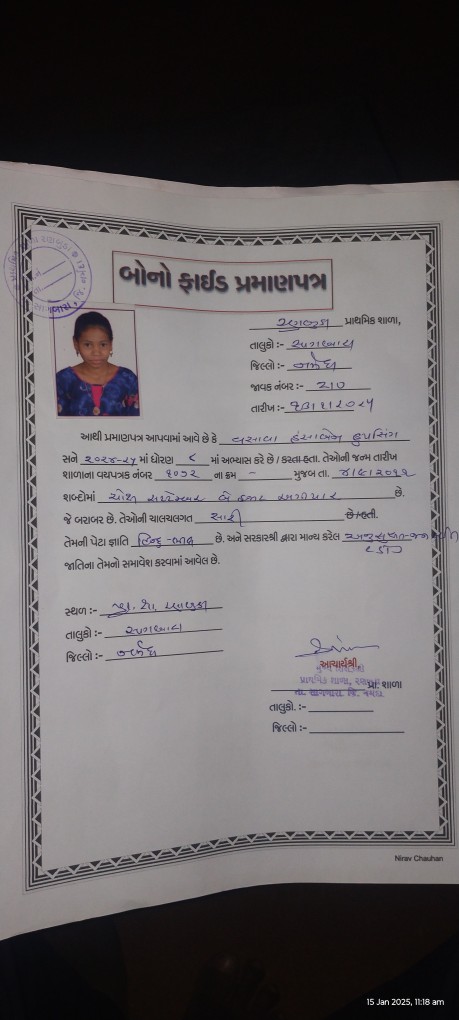 બોનો ફાઈડ પ્રમાણપત્ર
પ્રાથમિક શાળા,
તાલુકો :- સાગબારા
જિલ્લો :- નર્મદા
જાવક નંબર :- ૨૧૦
તારીખ :-
આથી પ્રમાણપત્ર આપવામાં આવે છે કે વસાવા હંસાબેન રૂપસિંગ
સને ૨૦૨૪-૨૫ માં ધોરણ ૮ માં અભ્યાસ કરે છે / કરતા હતા. તેઓની જન્મ તારીખ
શાળાના વયપત્રક નંબર ૧૦૭૨ ના ક્રમ - મુજબ તા. ૪/૯/૨૦૧૧
શબ્દોમાં ચોથી સપ્ટેમ્બર બે હજાર અગીયાર છે.
જે બરાબર છે. તેઓની ચાલચલગત સારી છે/હતી.
તેમની પેટા જ્ઞાતિ હિન્દુ-ભીલ છે. અને સરકારશ્રી દ્વારા માન્ય કરેલ
જાતિના તેમનો સમાવેશ કરવામાં આવેલ છે.
સ્થળ :- પ્રા. શા.
તાલુકો :- સાગબારા
જિલ્લો :- નર્મદા
આચાર્યશ્રી,
પ્રા. શાળા
તા. સાગબારા જિ. નર્મદા
તાલુકો. :-
જિલ્લો :-
Nirav Chauhan
15 Jan 2025, 11:18 am